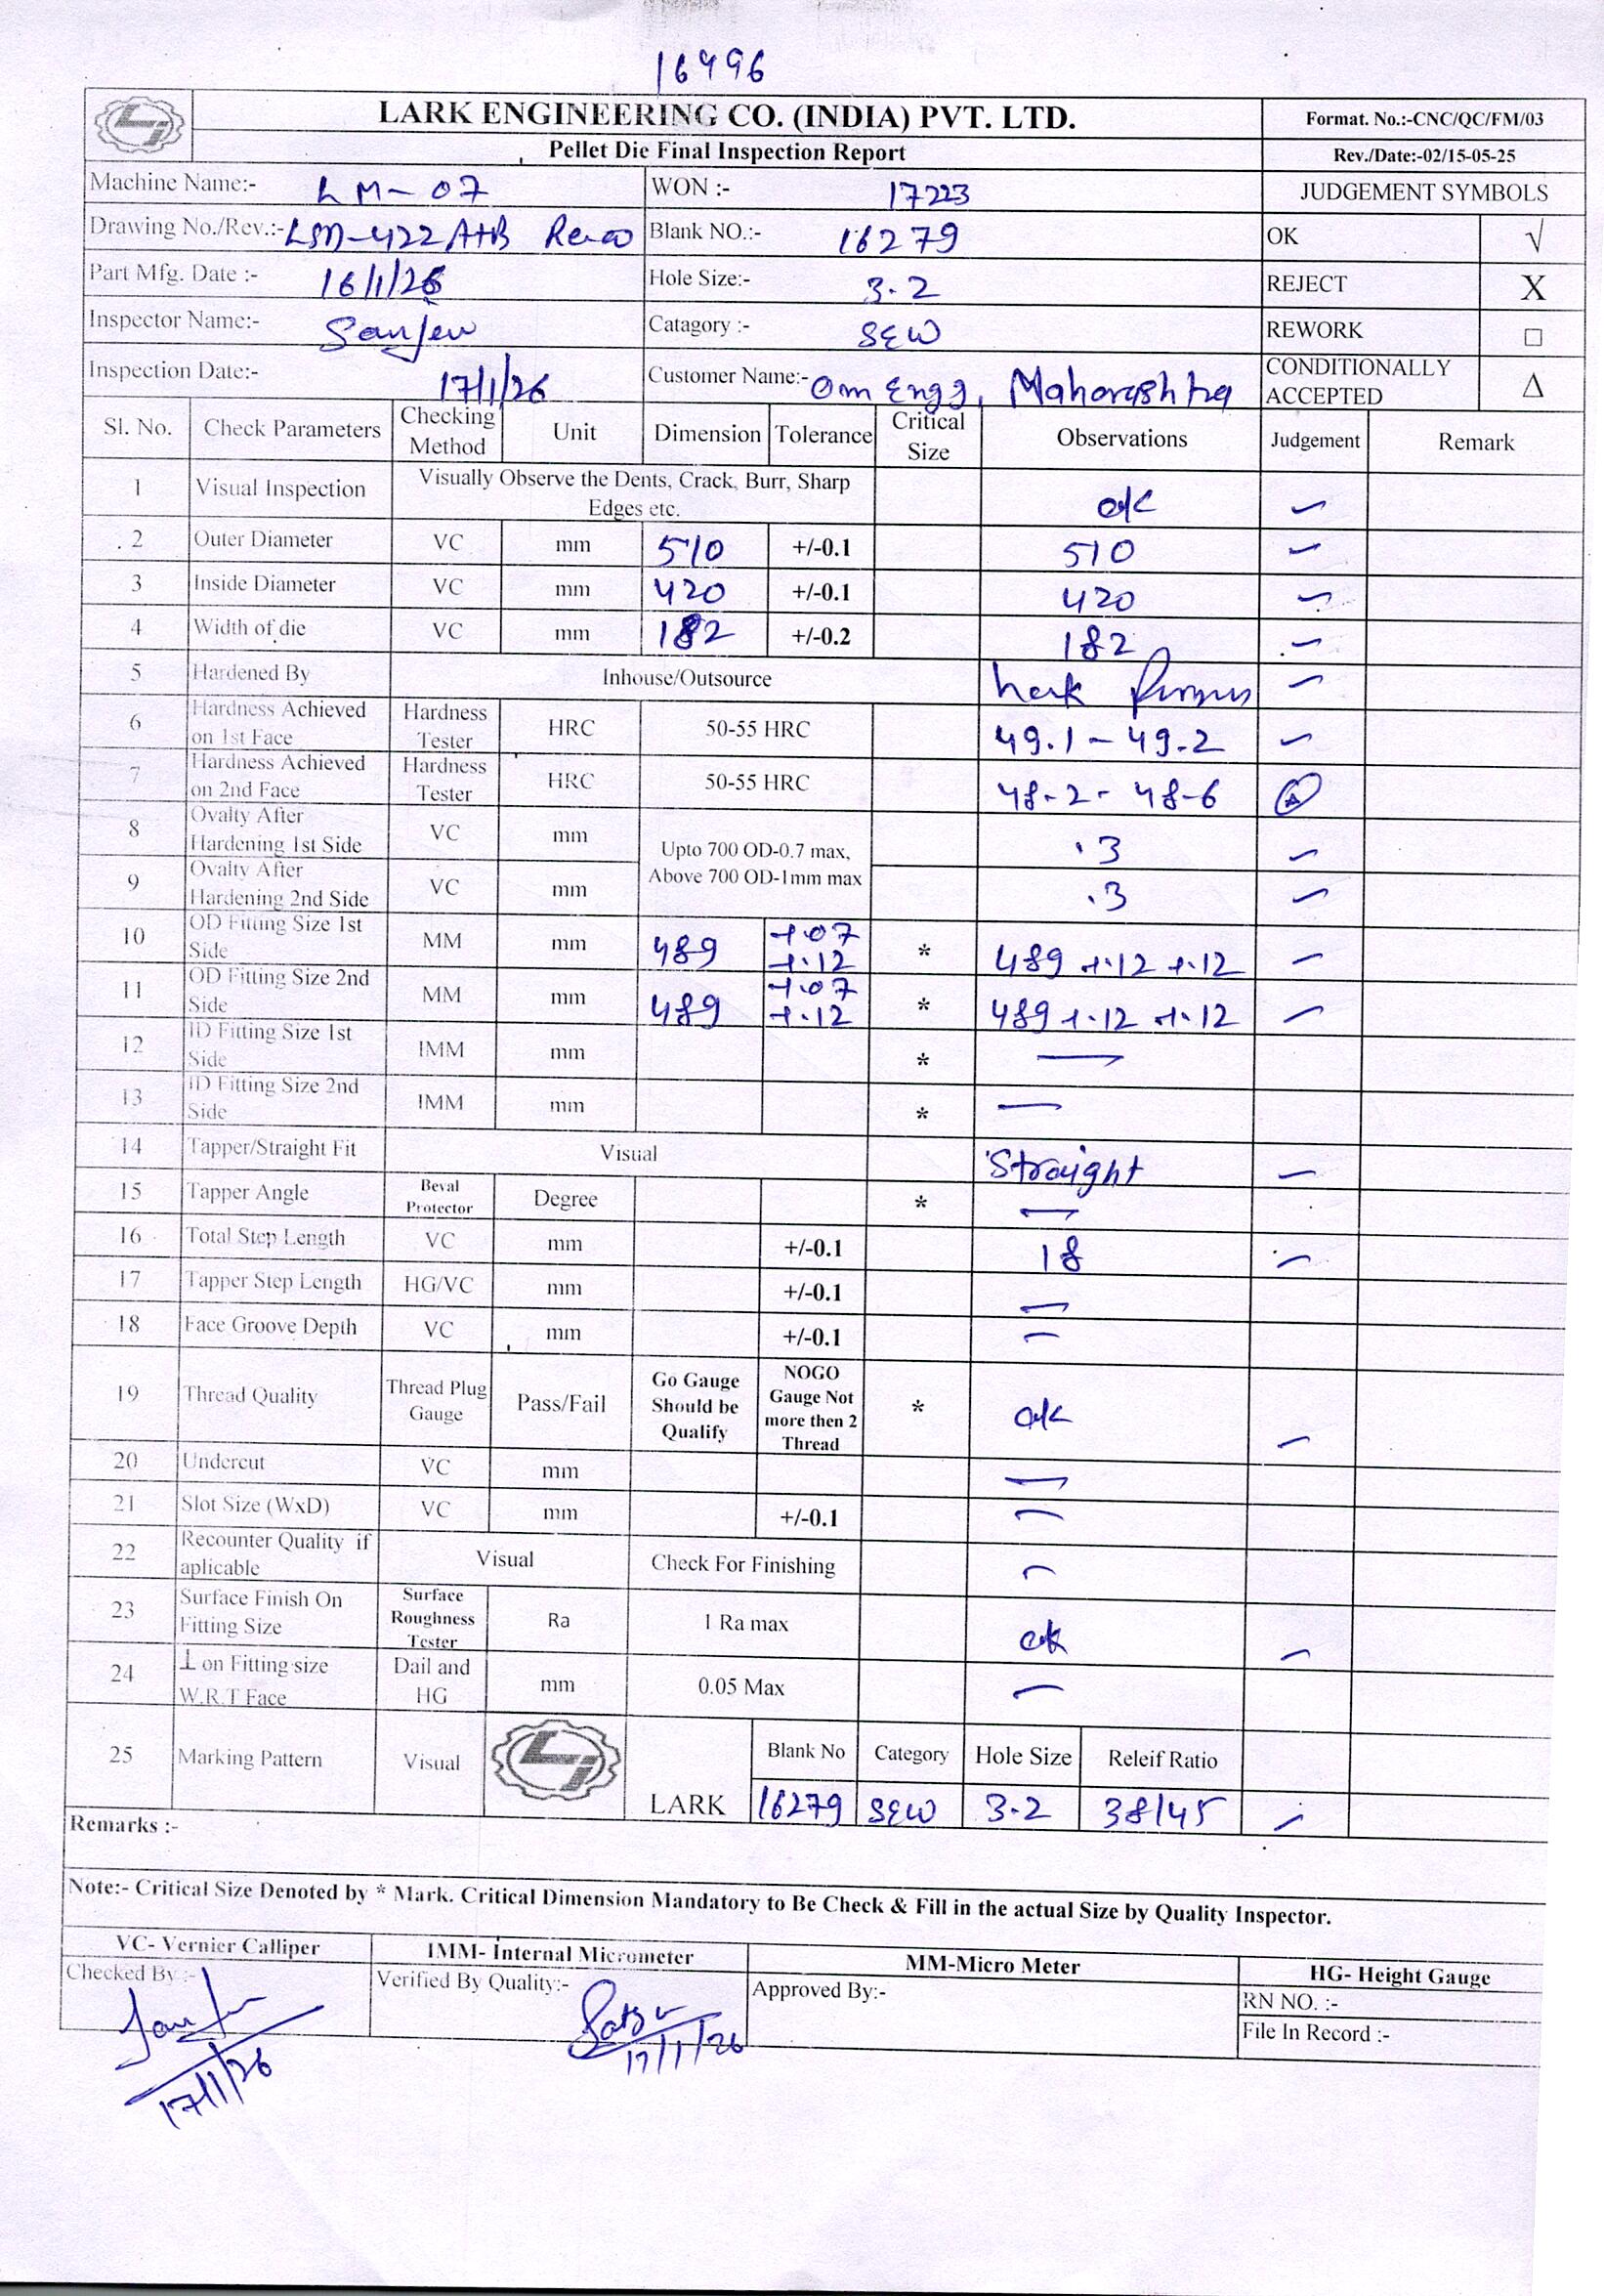 16496
LARK ENGINEERING CO. (INDIA) PVT. LTD. Format. No.:-CNC/QC/FM/03
Pellet Die Final Inspection Report Rev./Date:-02/15-05-25
Machine Name:- LM-07 WON :- 17223 JUDGEMENT SYMBOLS
Drawing No./Rev.:- LSM-422 A+B Rev.00 Blank NO.:- 16279 OK √
Part Mfg. Date :- 16/1/26 Hole Size:- 3.2 REJECT X
Inspector Name:- Sanjeev Catagory :- SEW REWORK □
Inspection Date:- 17/1/26 Customer Name:- Om Engg, Maharashtra CONDITIONALLY ACCEPTED Δ
Sl. No. Check Parameters Checking Method Unit Dimension Tolerance Critical Size Observations Judgement Remark
1 Visual Inspection Visually Observe the Dents, Crack, Burr, Sharp Edges etc. ok
2 Outer Diameter VC mm 510 +/-0.1 510
3 Inside Diameter VC mm 420 +/-0.1 420
4 Width of die VC mm 182 +/-0.2 182
5 Hardened By Inhouse/Outsource Lark
6 Hardness Achieved on 1st Face Hardness Tester HRC 50-55 HRC 49.1 - 49.2
7 Hardness Achieved on 2nd Face Hardness Tester HRC 50-55 HRC 48-2 - 48-6
8 Ovalty After Hardening 1st Side VC mm Upto 700 OD-0.7 max, Above 700 OD-1mm max .3
9 Ovalty After Hardening 2nd Side VC mm .3
10 OD Fitting Size 1st Side MM mm 489 +.07 +.12 * 489 +.12 +.12
11 OD Fitting Size 2nd Side MM mm 489 +.07 +.12 * 489 +.12 +.12
12 ID Fitting Size 1st Side IMM mm * —
13 ID Fitting Size 2nd Side IMM mm * —
14 Tapper/Straight Fit Visual Straight
15 Tapper Angle Beval Protector Degree * —
16 Total Step Length VC mm +/-0.1 18
17 Tapper Step Length HG/VC mm +/-0.1 —
18 Face Groove Depth VC mm +/-0.1 —
19 Thread Quality Thread Plug Gauge Pass/Fail Go Gauge Should be Qualify NOGO Gauge Not more then 2 Thread * ok
20 Undercut VC mm —
21 Slot Size (WxD) VC mm +/-0.1 —
22 Recounter Quality if aplicable Visual Check For Finishing —
23 Surface Finish On Fitting Size Surface Roughness Tester Ra 1 Ra max ok
24 ⊥ on Fitting size W.R.T Face Dail and HG mm 0.05 Max —
25 Marking Pattern Visual LARK Blank No Category Hole Size Releif Ratio
16279 SEW 3.2 38/45
Remarks :-
Note:- Critical Size Denoted by * Mark. Critical Dimension Mandatory to Be Check & Fill in the actual Size by Quality Inspector.
VC- Vernier Calliper IMM- Internal Micrometer MM-Micro Meter HG- Height Gauge
Checked By :- Verified By Quality:- Approved By:- RN NO. :-
File In Record :-
17/1/26 17/1/26